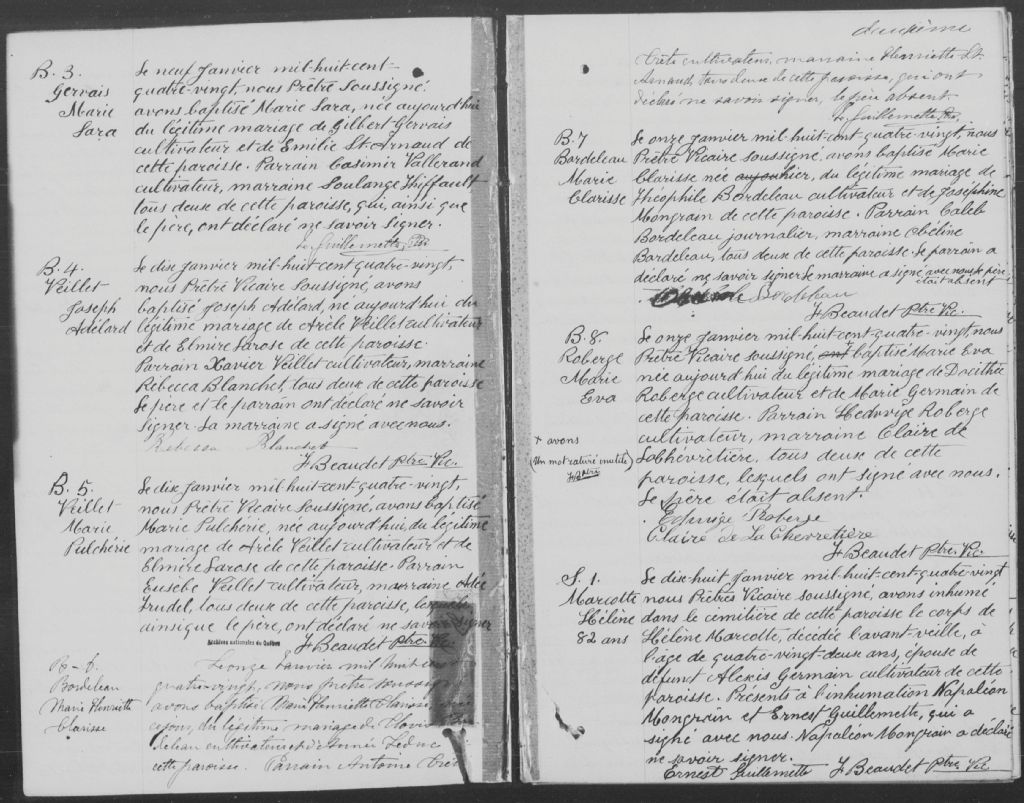 B. 3.
Gervais
Marie
Sara
Le neuf Janvier mil-huit-cent-
quatre-vingt, nous Prêtre Soussigné
avons baptisé Marie Sara, née aujourd'hui
du légitime mariage de Gilbert Gervais
cultivateur et de Emilie St. Arnaud de
cette paroisse. Parrain Casimir Vallerand
cultivateur, marraine Soulange Thiffault
tous deux de cette paroisse, qui, ainsi que
le père, ont déclaré ne savoir signer.
Guillemette Ptre
B. 4.
Veillet
Joseph
Adélard
Le dix Janvier mil-huit-cent quatre-vingt,
nous Prêtre Vicaire Soussigné, avons
baptisé Joseph Adélard, né aujourd'hui du
légitime mariage de Veillet cultivateur
et de Elmire Larose de cette paroisse.
Parrain Xavier Veillet cultivateur, marraine
Rebecca Blanchet, tous deux de cette paroisse
Le père et le parrain ont déclaré ne savoir
signer. La marraine a signé avec nous.
Rebecca Blanchet
J. Beaudet Ptre. Vic.
B. 5.
Veillet
Marie
Pulchérie
Le dix Janvier mil-huit-cent-quatre-vingt,
nous Prêtre Vicaire Soussigné, avons baptisé
Marie Pulchérie, née aujourd'hui, du légitime
mariage de Veillet cultivateur et de
Elmire Larose de cette paroisse. Parrain
Eusèbe Veillet cultivateur, marraine
Trudel, tous deux de cette paroisse, lesquels
ainsi que le père, ont déclaré ne savoir signer
J. Beaudet Ptre Vic
Archives nationales du Québec
B-6.
Bordeleau
Marie Henriette
Clarisse
Le onze Janvier mil huit cent
quatre-vingt, nous prêtre soussigné
avons baptisé Marie Henriette Clarisse,
du légitime mariage de
cultivateur et d'Leduc
cette paroisse. Parrain Antoine
deuxième
cultivateur, marraine Henriette St.
Arnaud, tous deux de cette paroisse, qui ont
déclaré ne savoir signer, le père absent.
Guillemette Ptre.
B. 7
Bordeleau
Marie
Clarisse
Le onze Janvier mil-huit-cent quatre-vingt, nous
Prêtre Vicaire soussigné, avons baptisé Marie
Clarisse née hier, du légitime mariage de
Théophile Bordeleau cultivateur et de Joséphine
Mongrain de cette paroisse. Parrain Caleb
Bordeleau journalier, marraine Obéline
Bordeleau, tous deux de cette paroisse. Le parrain a
déclaré ne savoir signer. La marraine a signé avec nous. Le père
était absent
Bordeleau
J. Beaudet Ptre Vic.
B. 8.
Roberge
Marie
Eva
Le onze Janvier mil-huit-cent-quatre-vingt, nous
Prêtre Vicaire soussigné, baptisé Marie Eva
née aujourd'hui du légitime mariage de Dosithée
Roberge cultivateur et de Marie Germain de
cette paroisse. Parrain Hedwige Roberge
cultivateur, marraine Claire de
Lachévrètière, tous deux de cette
paroisse, lesquels ont signé avec nous.
Le père était absent.
+ avons
(Un mot raturé inutile)
Edwige Roberge
Claire de La Chevretière
J. Beaudet Ptre. Vic.
S. 1.
Marcotte
Hélène
82 ans
Le dix-huit Janvier mil-huit-cent-quatre-vingt
nous Prêtres Vicaire soussigné, avons inhumé
dans le cimitière de cette paroisse le corps de
Hélène Marcotte, décédée l'avant-veille, à
l'âge de quatre-vingt-deux ans, épouse de
défunt Alexis Germain cultivateur de cette
Paroisse. Présents à l'inhumation Napoléon
Mongrain et Ernest Guillemette, qui a
signé avec nous. Napoléon Mongrain a déclaré
ne savoir signer.
Ernest Guillemette J. Beaudet Ptre Vic